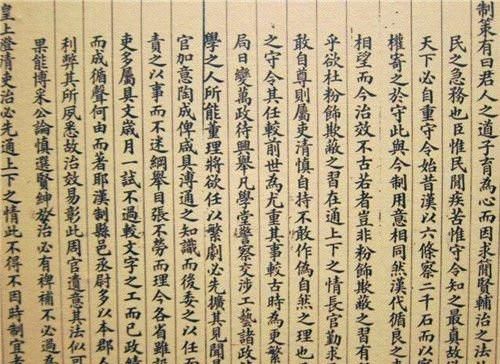 制策有曰君人之道子育為心而因求閒賢輔治之法
民之急務也臣惟民間疾苦惟守令知之最真故
天下必自重守令始昔漢以六條察二千石而以
權寄之於守此與今制用意相同然漢代循良之
相望而今治效不古若者豈非粉飾欺蔽之習有
乎欲杜粉飾欺蔽之習在通上下之情長官勤求
敢自尊則屬吏清慎自持不敢作偽自然之理也
之守令其任較前世為尤重其事較古時為更繁
局日變萬政待興舉凡學堂警察交涉工藝諸政
學之人所能董理將欲任以繁劇必先擴其見聞
官加意陶成俾咸具溥通之知識而後委之以任
責之以事而不迷綱舉目張不勞而理今各省雖
吏多屬具文歲月一試不過較文字之工而已政情
而成循聲何由而著耶漢制縣邑丞尉多以本郡人
利弊其所夙悉故治效易彰此周官遺意其法似可
果能博采公論慎選賢紳於治必有裨補不必過為
皇上澄清吏治必先通上下之情此不得不因時制宜